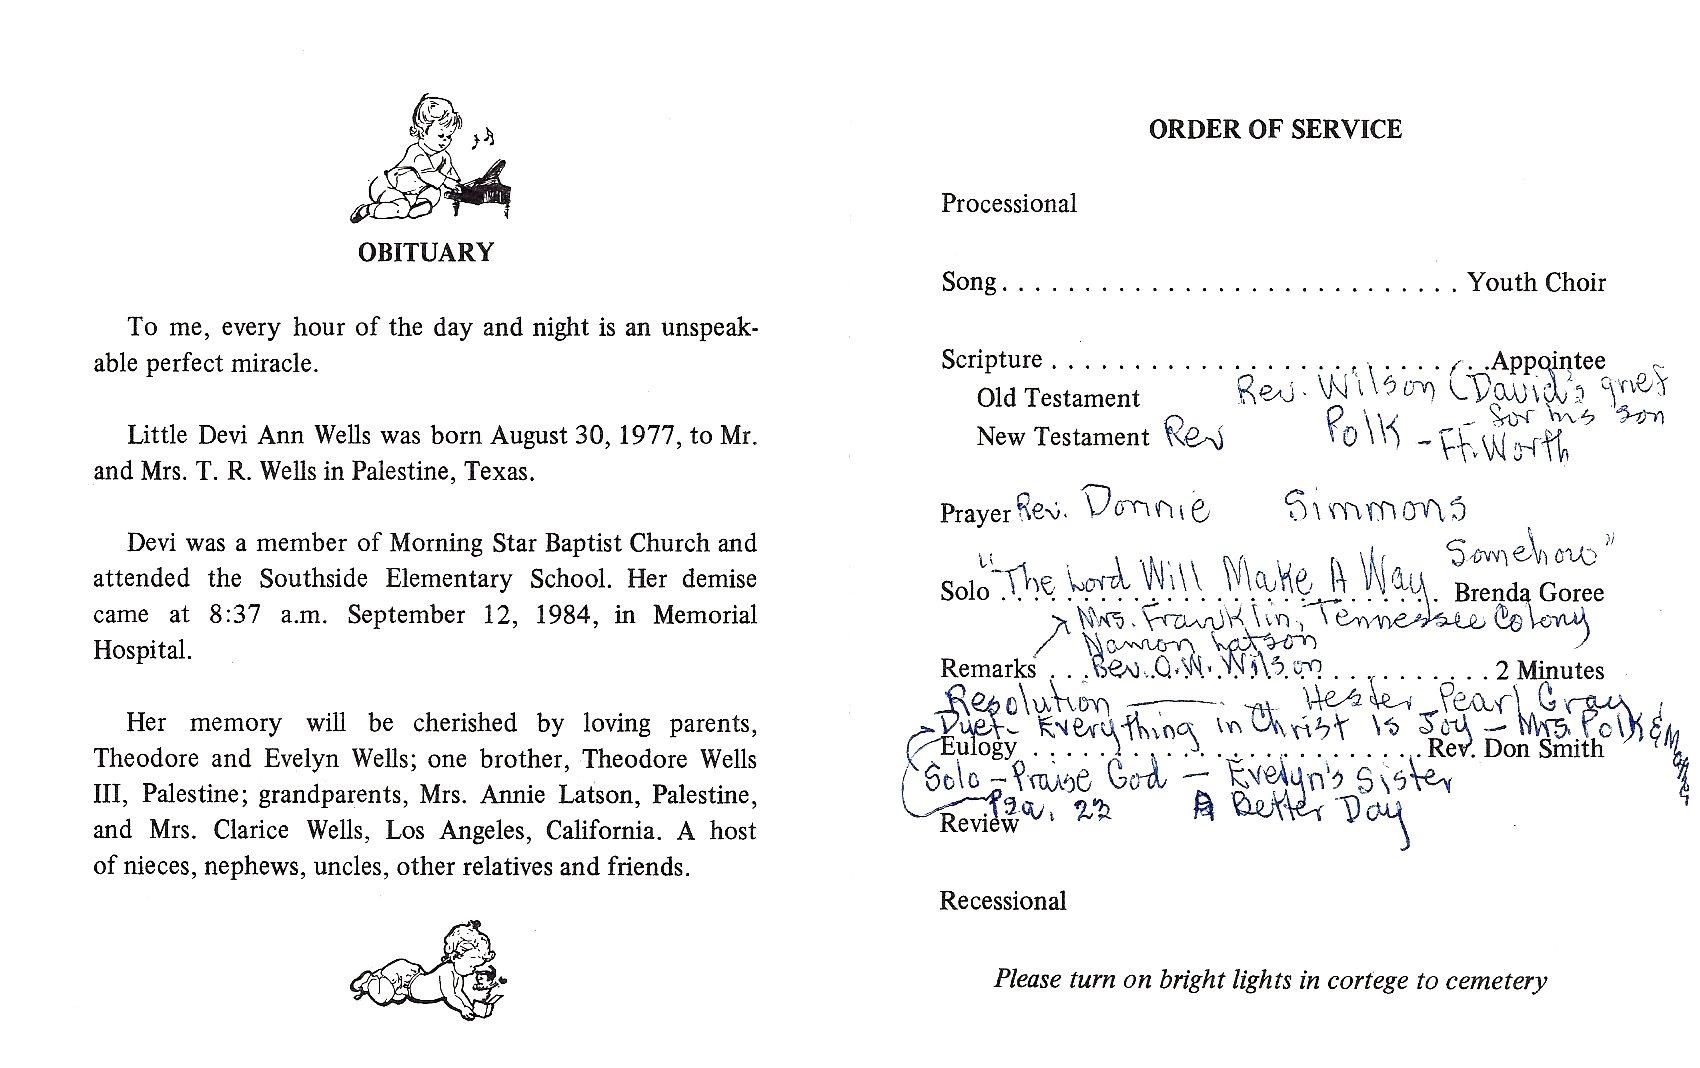 OBITUARY
To me, every hour of the day and night is an unspeak-
able perfect miracle.
Little Devi Ann Wells was born August 30, 1977, to Mr.
and Mrs. T. R. Wells in Palestine, Texas.
Devi was a member of Morning Star Baptist Church and
attended the Southside Elementary School. Her demise
came at 8:37 a.m. September 12, 1984, in Memorial
Hospital.
Her memory will be cherished by loving parents,
Theodore and Evelyn Wells; one brother, Theodore Wells
III, Palestine; grandparents, Mrs. Annie Latson, Palestine,
and Mrs. Clarice Wells, Los Angeles, California. A host
of nieces, nephews, uncles, other relatives and friends.
ORDER OF SERVICE
Processional
Song. . . . . . . . . . . . . . . . . . . . . . . . . . . . Youth Choir
Scripture . . . . . . . . . . . . . . . . . . . . . . . . . . . Appointee
Old Testament Rev. Wilson (David's grief
for his son
New Testament Rev Polk - Ft. Worth
Prayer Rev. Donnie Simmons
"The Lord Will Make A Way Somehow"
Solo . . . . . . . . . . . . . . . . . . . . . . . . . . . Brenda Goree
Mrs. Franklin, Tennessee Colony
Namon Latson
Remarks . . . Rev. O.W. Wilson . . . . . . . . . . 2 Minutes
Resolution — Hester Pearl Gray
Duet - Everything in Christ Is Joy - Mrs. Polk &
Eulogy . . . . . . . . . . . . . . . . . . . . . . . . Rev. Don Smith
Solo - Praise God - Evelyn's Sister
Psa. 22 A Better Day
Review
Recessional
Please turn on bright lights in cortege to cemetery